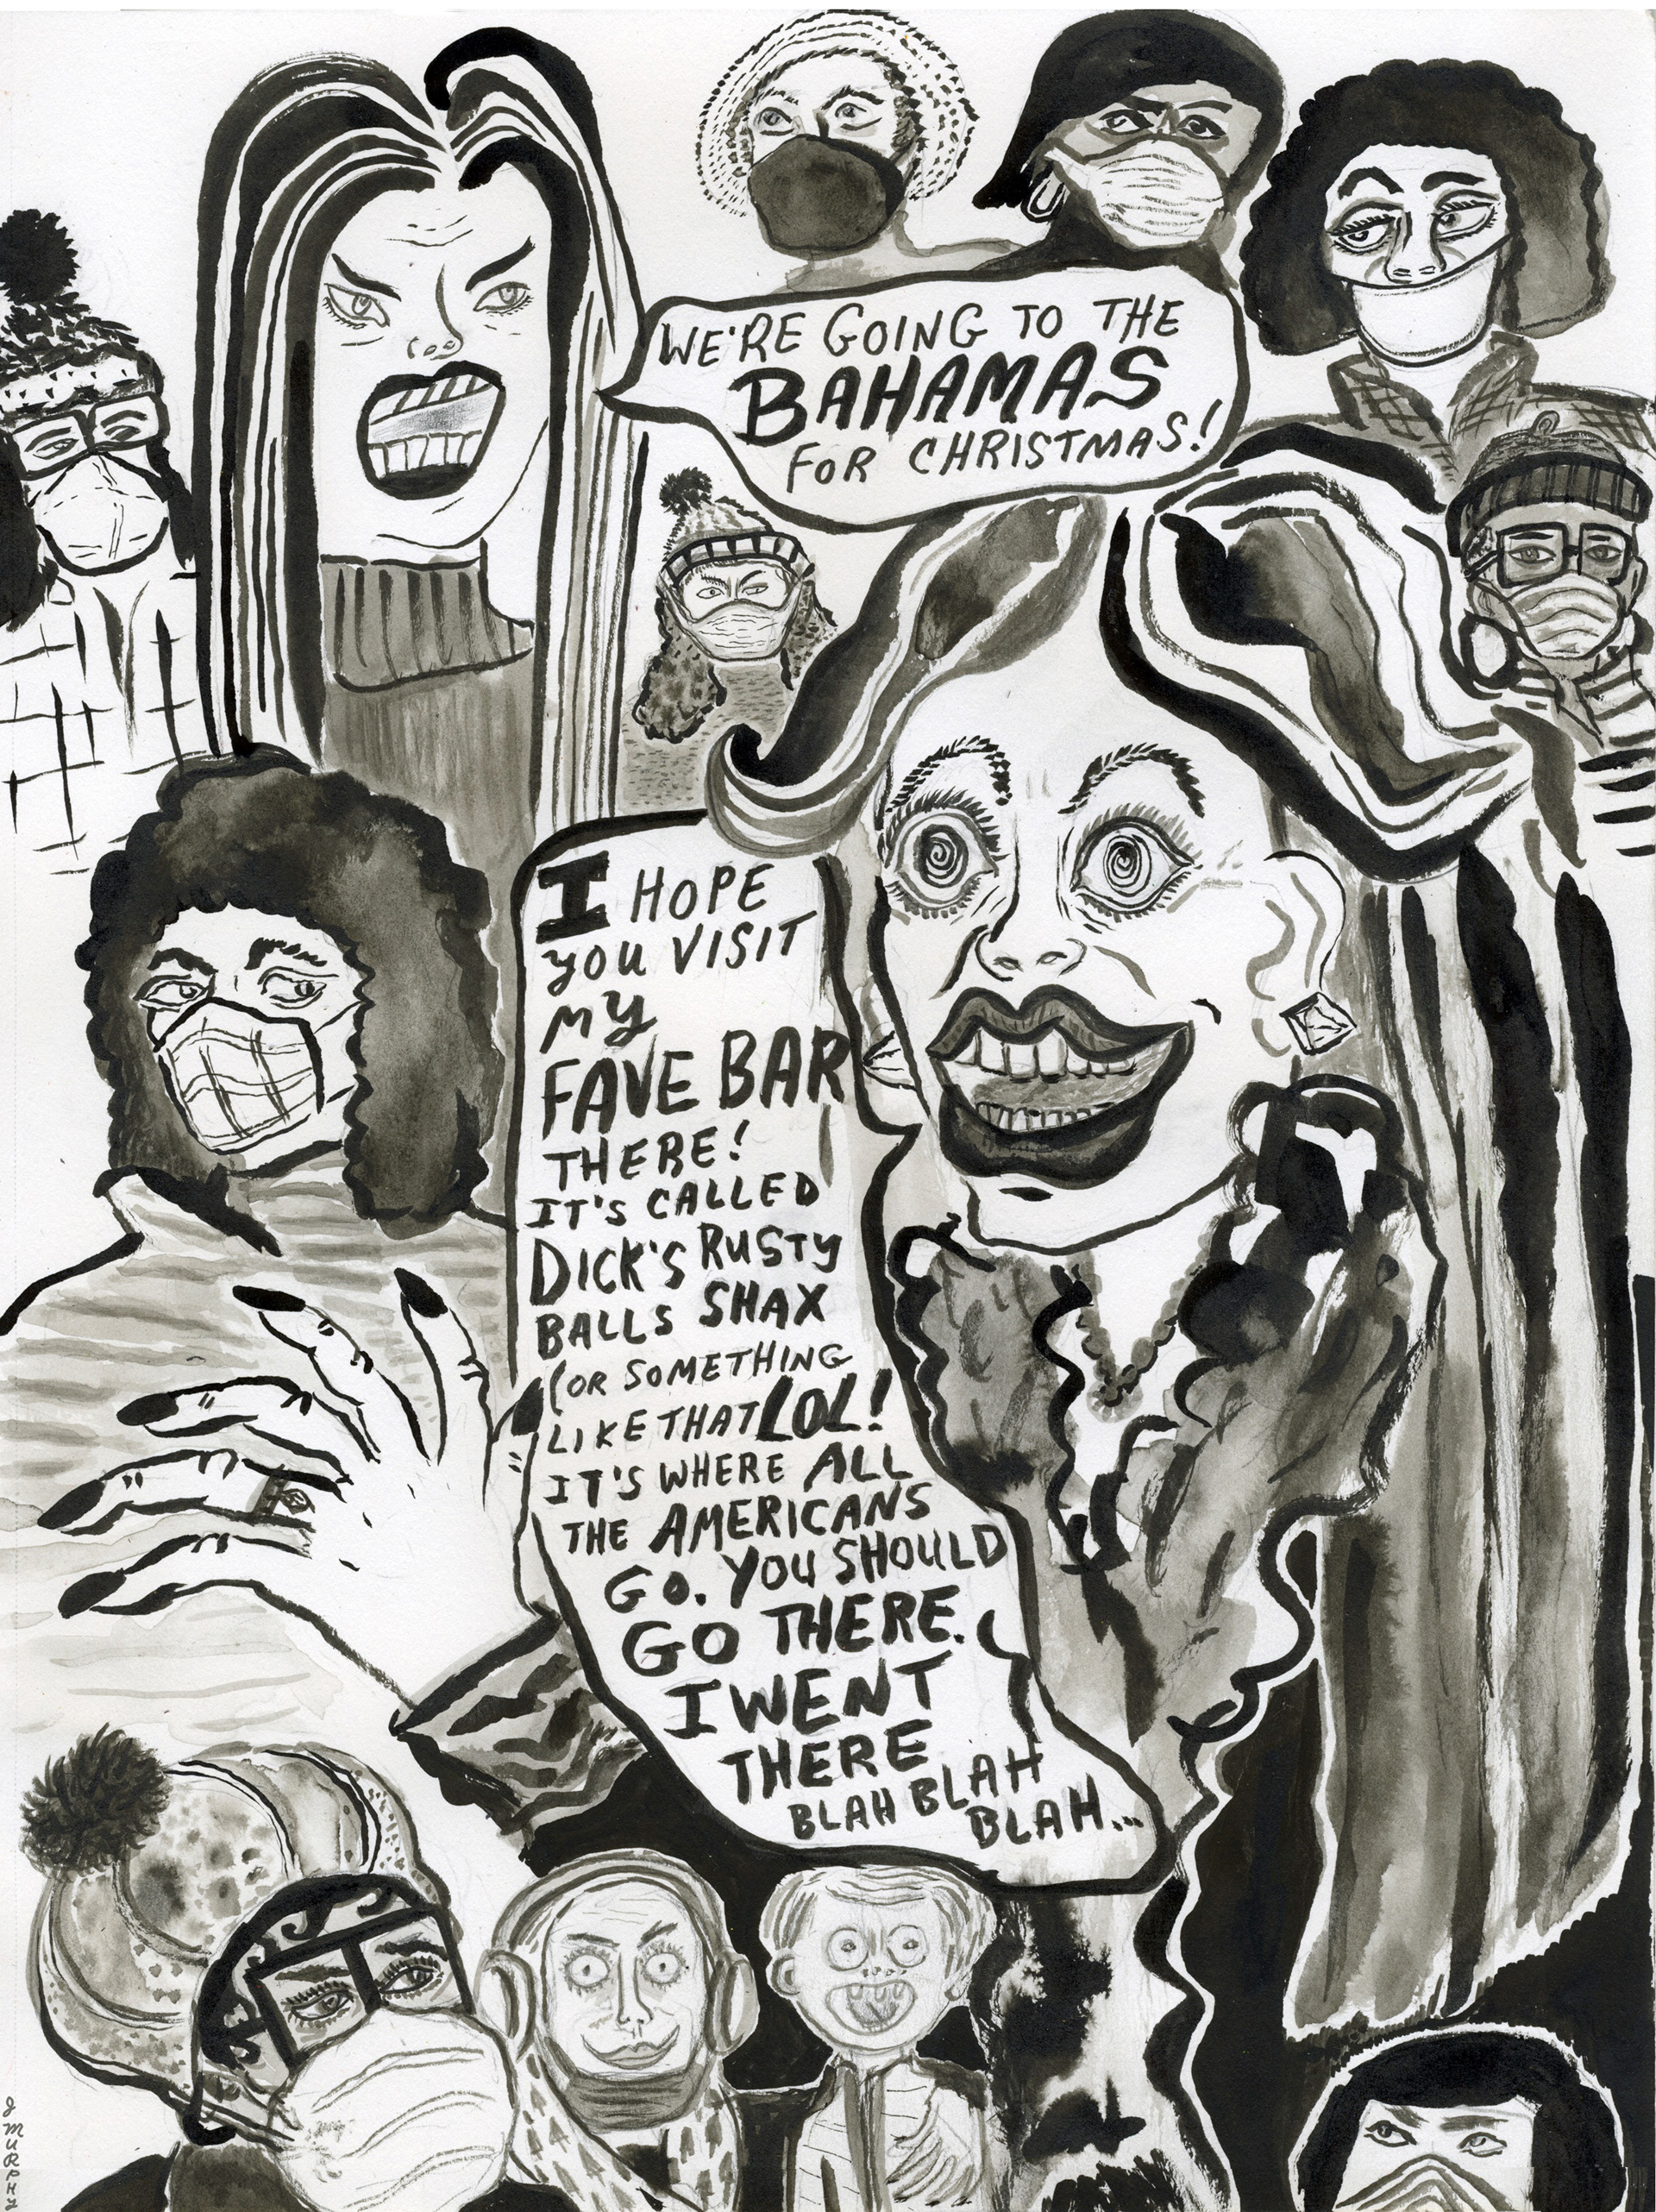 WE'RE GOING TO THE
BAHAMAS
FOR CHRISTMAS!
I HOPE
YOU VISIT
MY
FAVE BAR
THERE!
IT'S CALLED
DICK'S RUSTY
BALLS SHAX
(OR SOMETHING
LIKE THAT LOL!
IT'S WHERE ALL
THE AMERICANS
GO. YOU SHOULD
GO THERE.
I WENT
THERE
BLAH BLAH
BLAH...
J MURPHY